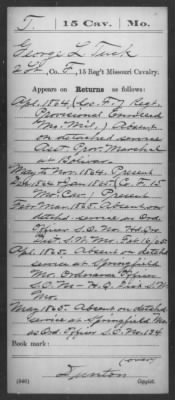 T. | 15 Cav. | Mo.
George L Tuck
2 Lt, Co. F, 15 Reg't Missouri Cavalry.
Appears on Returns as follows:
Apl. 1864 (Cos. F, 7 Regt.
Provisional Enrolled
Mo. Mil.) Absent
on detached service
Asst. Prov. Marshal
at Bolivar.
May to Nov. 1864. Present
Dec. 1864 Jan 1865 (Co. F. 15
Mo. Cav.) Present
Feb. Mar. 1865. Absent on
detchd service as Ord.
Officer S.O. No. Hd. Qrs.
Dist. S.W. Mo. Feb 16/65
Apl. 1865. Absent on detchd
service at Springfield
Mo. Ordnance Officer
S.O. No - H.Q. Dist S.W.
Mo.
May 1865. Absent on detchd
service at Springfield Mo.
as Ord. Officer S.O. No. 134
Book mark:
(over)
Dunton
(546) Copyist.